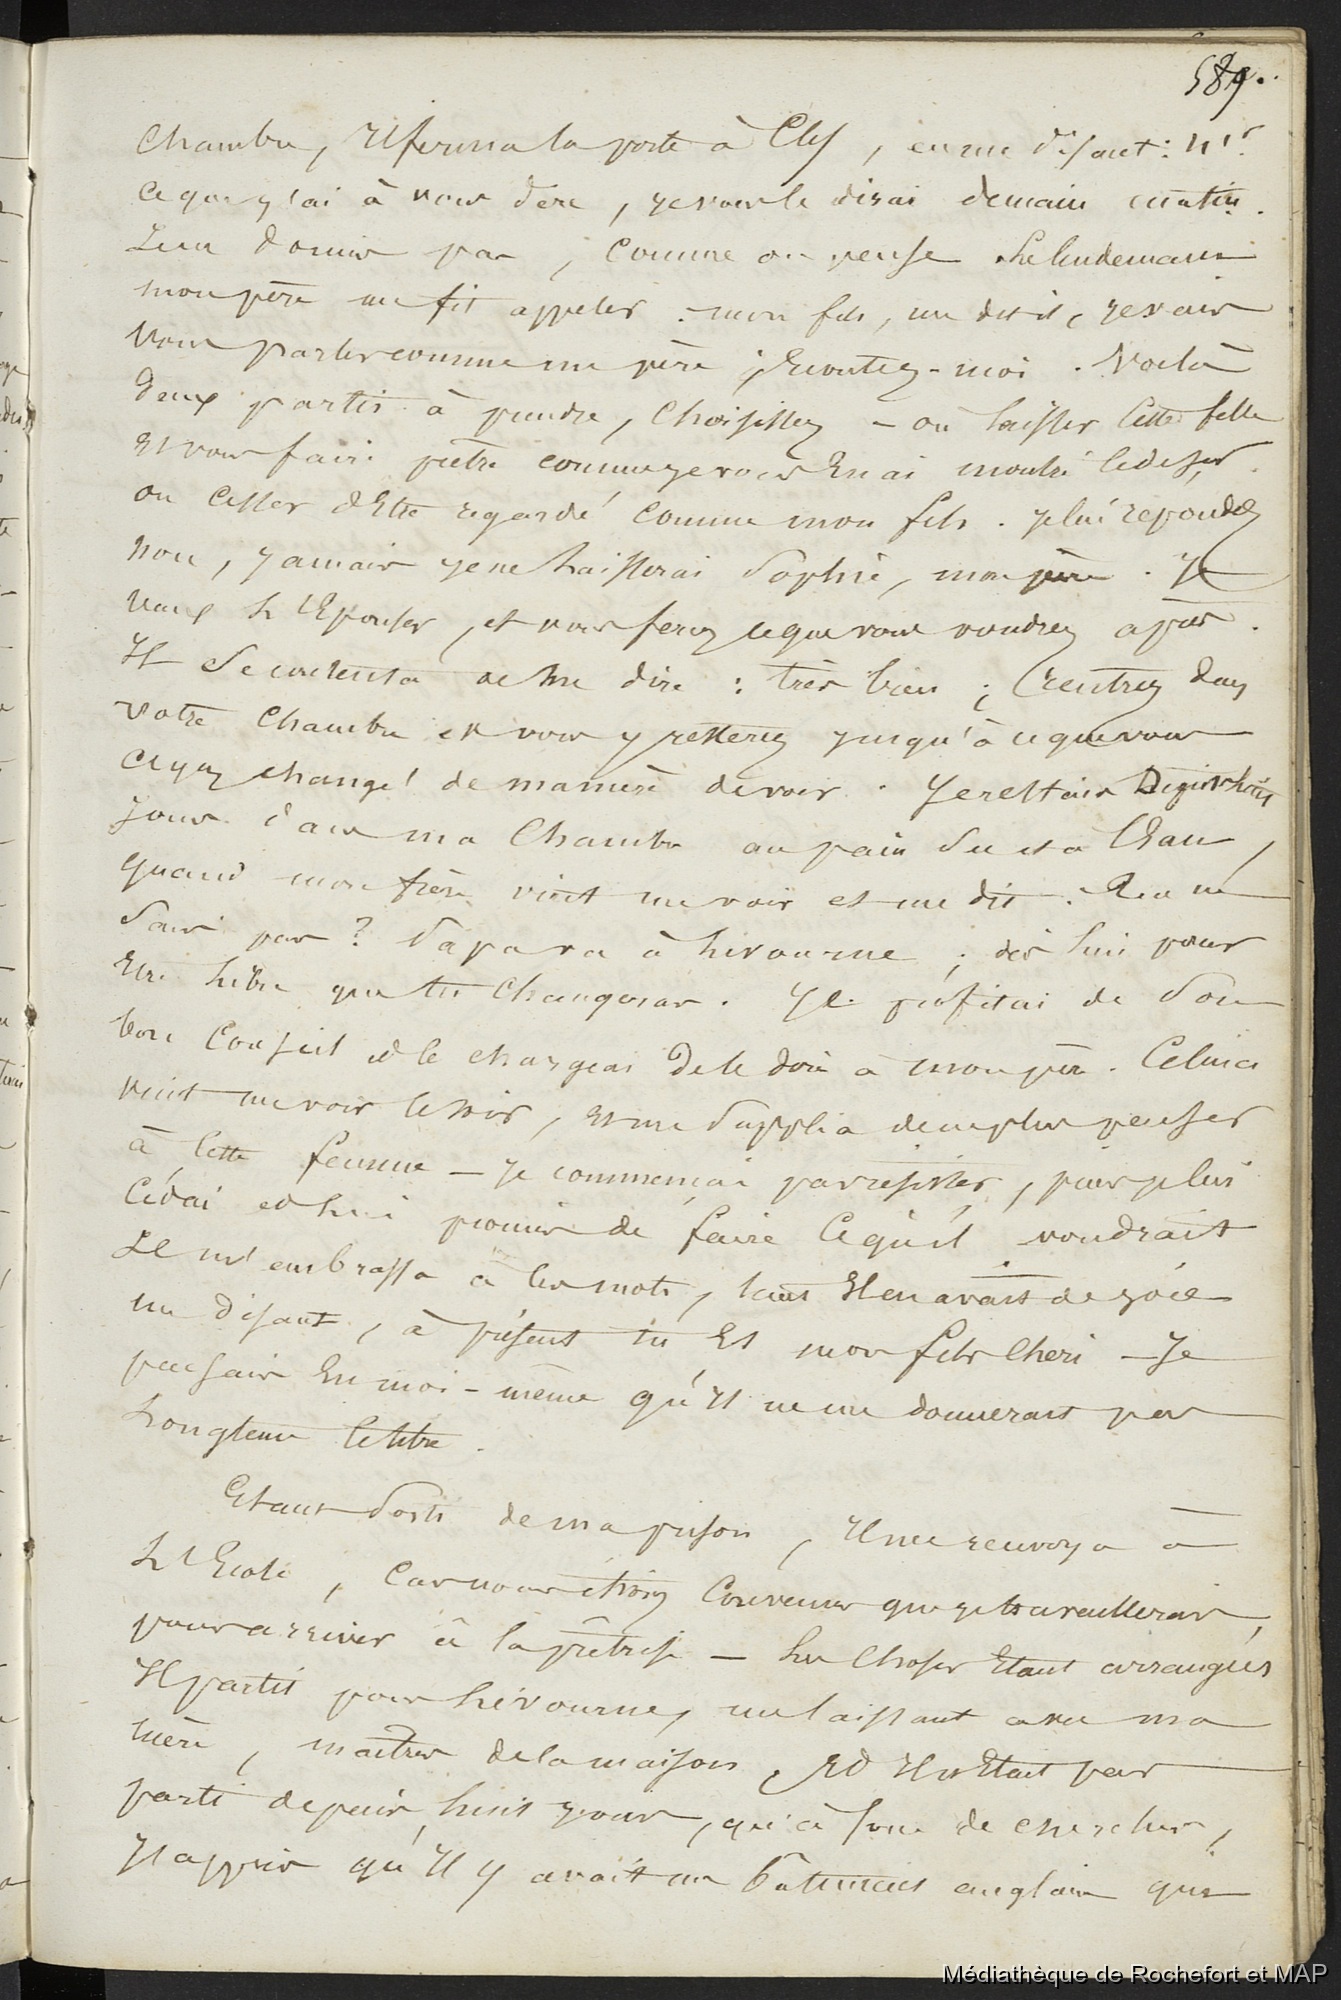 589.
Chambre, referma la porte à Clef, en me disant : Mr
ce que j'ai à vous dire, je vous le dirai demain matin.
Je ne dormis pas, comme on pense. Le lendemain
mon père me fit appeler : mon fils, me dit il, je vais
vous parler comme un père ; Ecoutez-moi. Voilà
deux partis à prendre, choisissez - ou laisser cette fille
Et vous faire prêtre comme je vous En ai montré le désir,
ou cesser d'Etre regardé comme mon fils. Je lui répondis
non, jamais je ne laisserai Sophie, mon père. Je
veux L'Epouser, et vous ferez ce que vous voudrez après.
Il se contenta de me dire : très bien ; rentrez dans
votre chambre et vous y resterez jusqu'à ce que vous
ayez changé de manière de voir. Je restais Dix huit
jours dans ma Chambre au pain sec et à l'Eau,
quand mon frère vint me voir et me dit :
Sais pas ? Papa va à Livourne ; dis lui pour
Etre libre que tu changeras. Je profitai de Son
bon Conseil et le chargeai De le dire à mon père. Celui ci
vint me voir le soir, Et me Supplia de ne plus penser
à Cette femme - je commençai par résister, puis je lui
Cédai et lui promis de faire Ce qu'il voudrait
Il m'embrassa à Ces mots, tant Il en avait de joie
me disant, à présent tu Es mon fils Chéri - Je
pensais En moi-même qu'Il ne me donnerait pas
Longtems Ce titre.
Etant Sorti de ma prison, Il me renvoya à
L'Ecole, Car nous étions Convenus que je travaillerais,
pour arriver à la prêtrise - Les Choses Etant arrangées
Il partit pour Livourne, me laissant avec ma
mère, maîtres de la maison, Et Il n'Etait pas
parti depuis huit jours, qu'à force de chercher,
J'appris qu'Il y avait un bâtiment anglais qui
Médiathèque de Rochefort et MAP